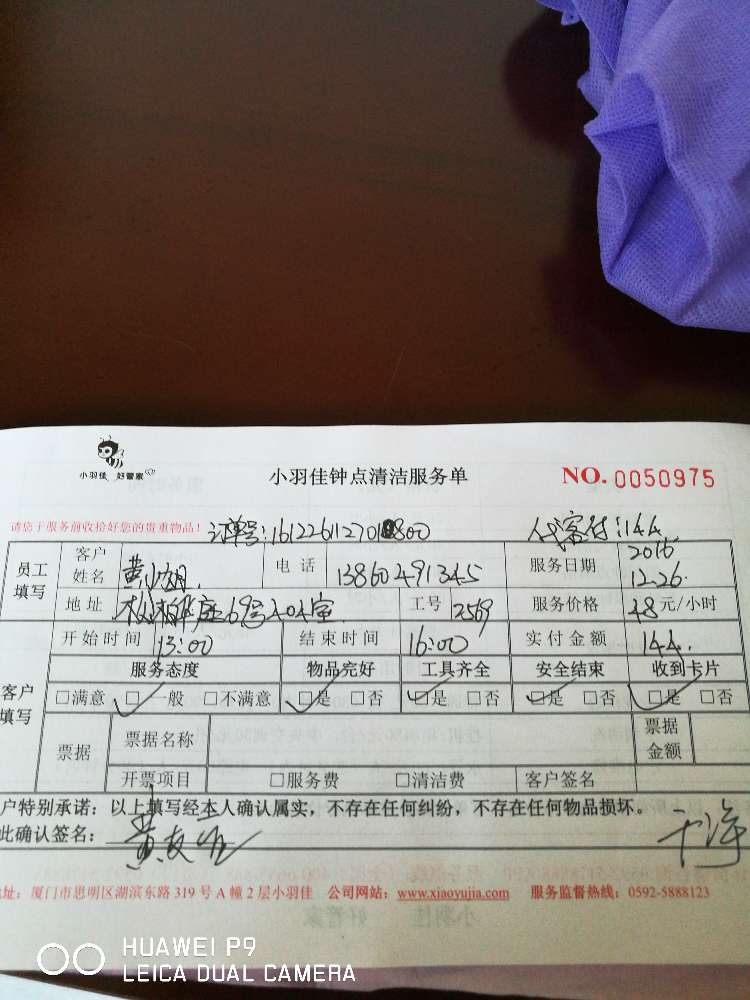 小羽佳 好管家
小羽佳钟点清洁服务单
NO. 0050975
请您于服务前收拾好您的贵重物品！ 订单号:
代客付:144
员工填写 客户姓名 黄 电话 13860491345 服务日期 2016 12.26
地址 69号404室 工号 2569 服务价格 48元/小时
开始时间 13:00 结束时间 16:00 实付金额 144.
客户填写 服务态度 物品完好 工具齐全 安全结束 收到卡片
□满意 □一般 □不满意 □是 □否 □是 □否 □是 □否 □是 □否
票据 票据名称 票据金额
开票项目 □服务费 □清洁费 客户签名
户特别承诺：以上填写经本人确认属实，不存在任何纠纷，不存在任何物品损坏。
此确认签名： 黄
址：厦门市思明区湖滨东路 319 号 A 幢 2 层小羽佳 公司网站：www.xiaoyujia.com 服务监督热线：0592-5888123
HUAWEI P9
LEICA DUAL CAMERA